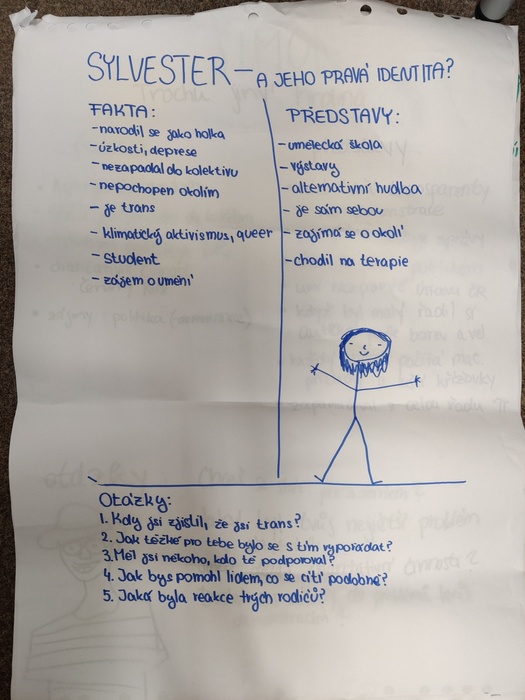 SYLVESTER – A JEHO PRAVÁ IDENTITA?
FAKTA:
- narodil se jako holka
- úzkosti, deprese
- nezapadal do kolektivu
- nepochopen okolím
- je trans
- klimatický aktivismus, queer
- student
- zájem o umění
PŘEDSTAVY:
- umělecká škola
- výstavy
- alternativní hudba
- je sám sebou
- zajímá se o okolí
- chodil na terapie
Otázky:
1. Kdy jsi zjistil, že jsi trans?
2. Jak těžké pro tebe bylo se s tím vypořádat?
3. Měl jsi někoho, kdo tě podporoval?
4. Jak bys pomohl lidem, co se cítí podobně?
5. Jaká byla reakce tvých rodičů?